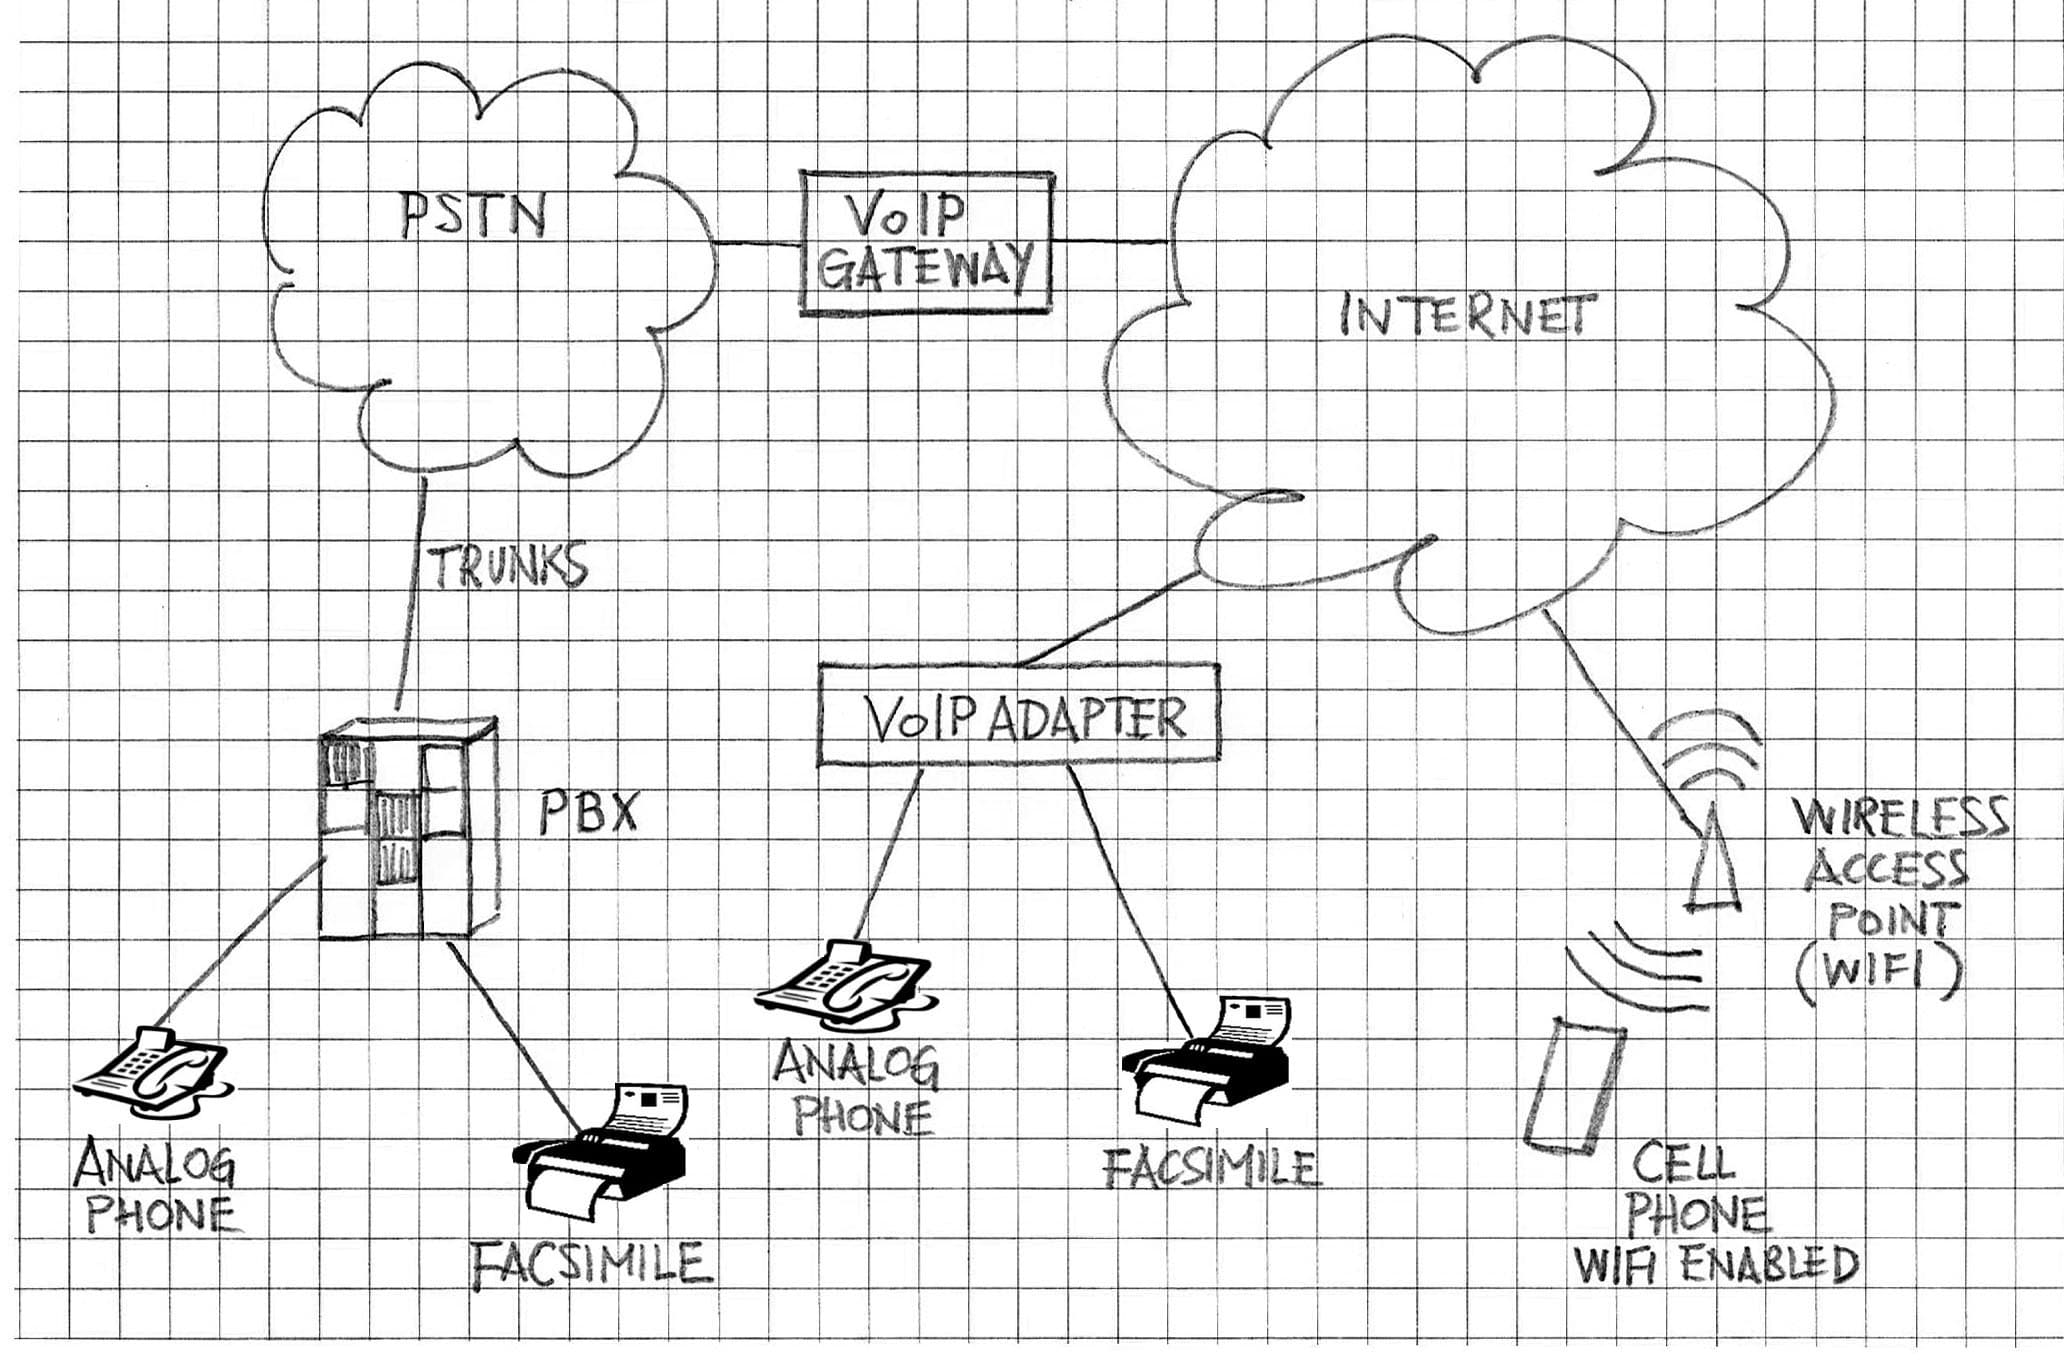 PSTN
VoIP
GATEWAY
INTERNET
TRUNKS
PBX
VoIP ADAPTER
WIRELESS
ACCESS
POINT
(WIFI)
ANALOG
PHONE
FACSIMILE
ANALOG
PHONE
FACSIMILE
CELL
PHONE
WIFI ENABLED